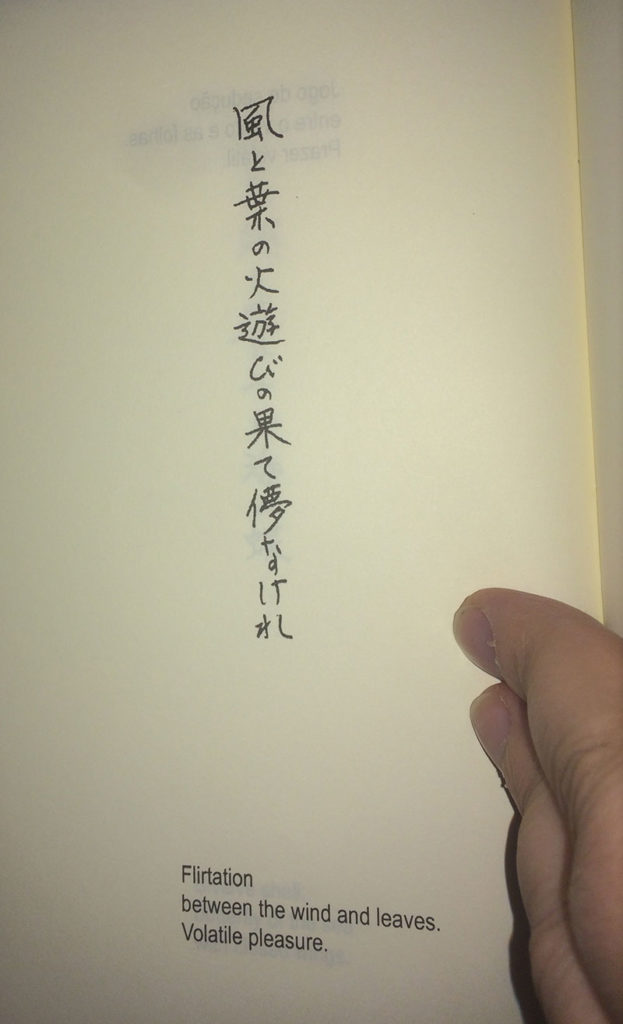 風と葉の火遊びの果て儚なけれ
Flirtation
between the wind and leaves.
Volatile pleasure.